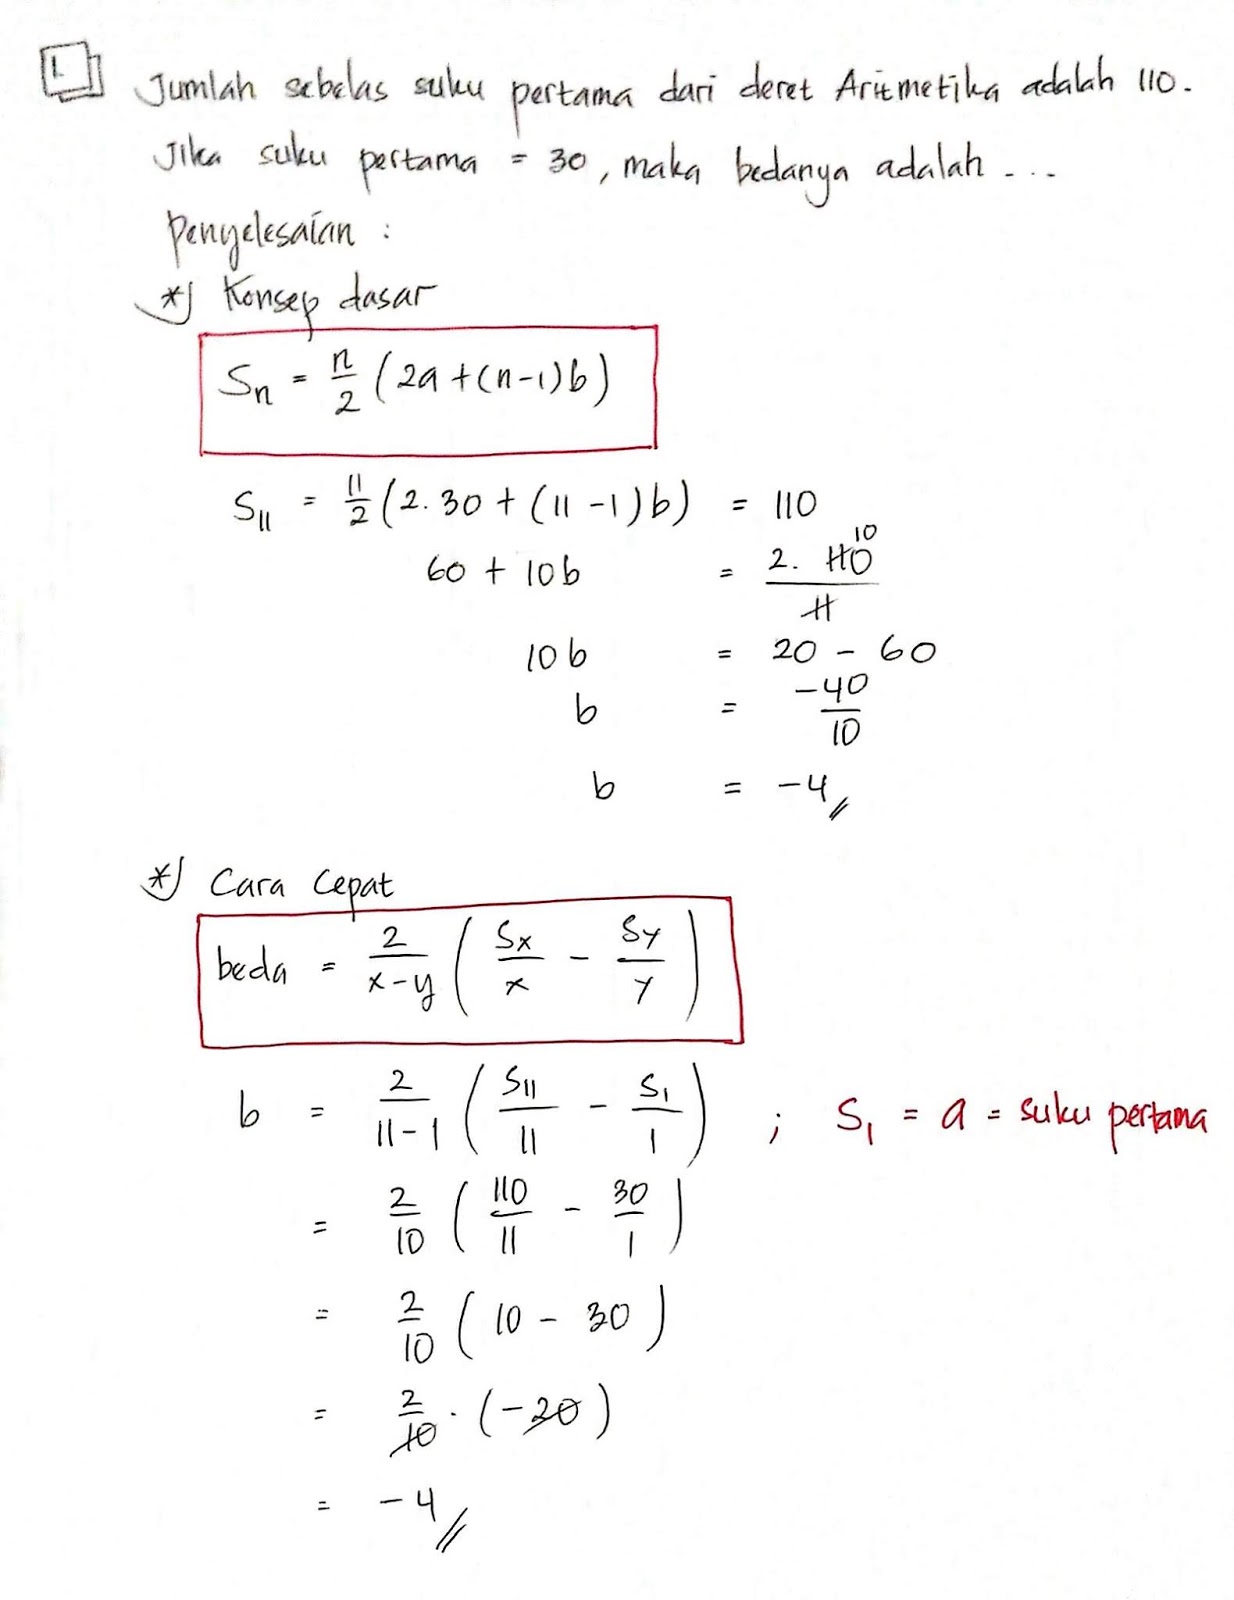 1.
Jumlah sebelas suku pertama dari deret Aritmetika adalah 110.
Jika suku pertama = 30, maka bedanya adalah ...
Penyelesaian :
*) Konsep dasar
Sn = n/2 (2a + (n-1)b)
S11 = 11/2 (2.30 + (11-1)b) = 110
60 + 10b = 2. 110 10 / 11
10b = 20 - 60
b = -40/10
b = -4 //
*) Cara Cepat
beda = 2/(x-y) (Sx/x - Sy/y)
b = 2/(11-1) (S11/11 - S1/1) ; S1 = a = suku pertama
= 2/10 (110/11 - 30/1)
= 2/10 (10 - 30)
= 2/10 . (-20)
= -4 //